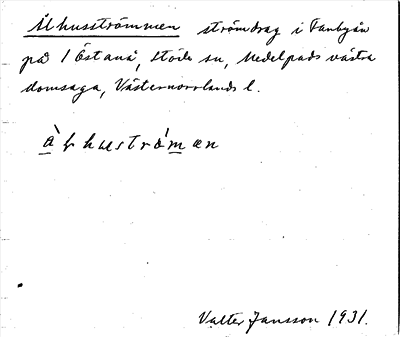 Ålhusströmmen strömdrag i Fanbyån
på 1 Östanå, Stöde sn, Medelpads västra
domsaga, Västernorrlands l.
Valter Jansson 1931.